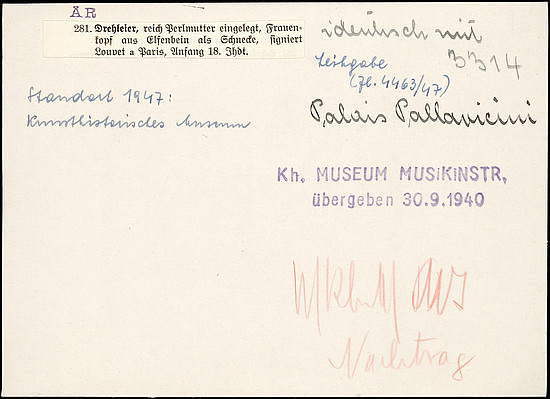 ÄR
281. Drehleier, reich Perlmutter eingelegt, Frauen-
kopf aus Elfenbein als Schnecke, signiert
Louvet a Paris, Anfang 18. Jhdt.
identisch mit
3314
Leihgabe
(Zl. 4463/47)
Palais Pallavicini
Standort 1947:
Kunsthistorisches Museum
Kh. MUSEUM MUSiKiNSTR,
übergeben 30.9.1940
Nachtrag